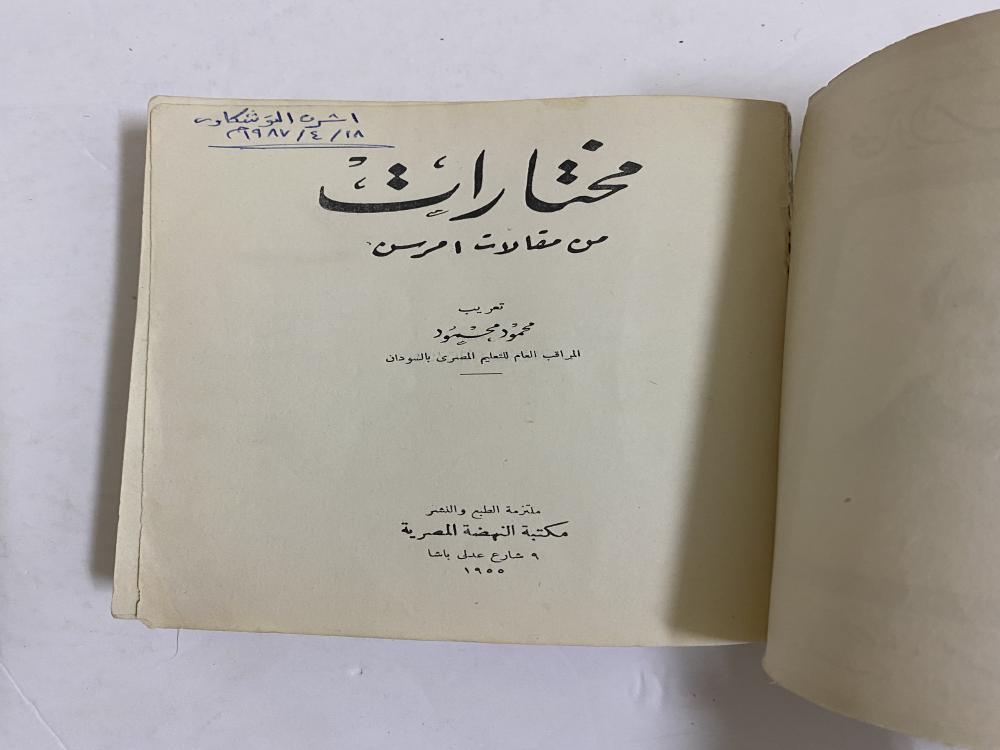 اشرف التوشكاوى
١٨/٤/١٩٨٧م
مختارات
من مقالات امرسن
تعريب
محمود محمود
المراقب العام للتعليم المصرى بالسودان
ملتزمة الطبع والنشر
مكتبة النهضة المصرية
٩ شارع عدلى باشا
١٩٥٥